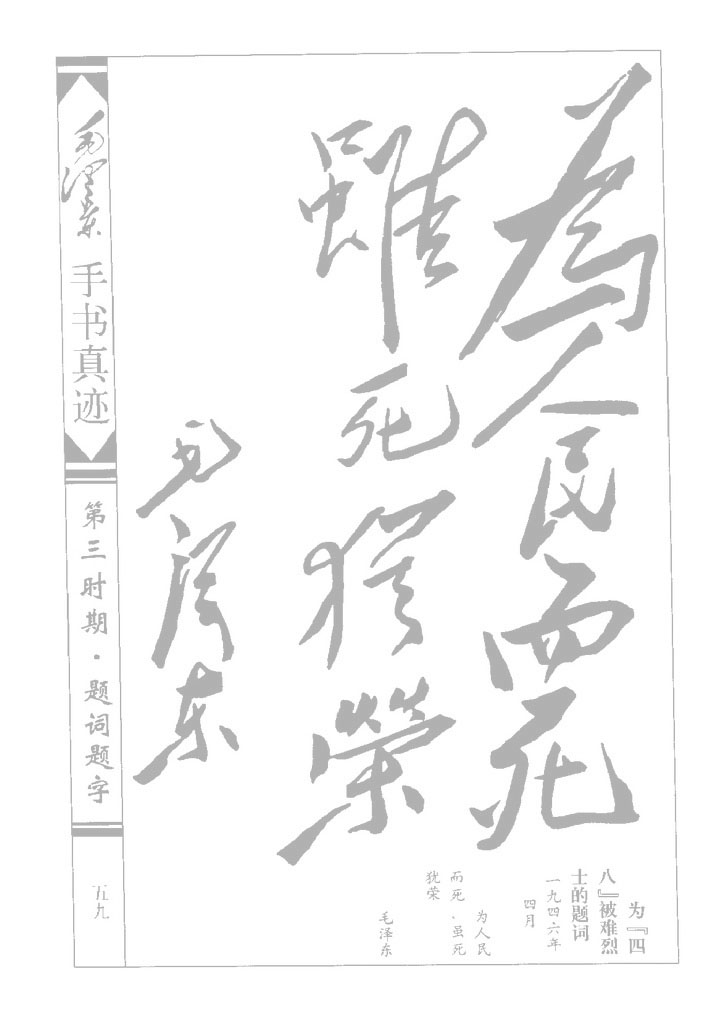 為人民而死
雖死猶榮
毛澤东
为『四
八』被难烈
士的题词
一九四六年
四月
为人民
而死，虽死
犹荣
毛泽东
毛澤东
手书真迹
第三时期·题词题字
五九